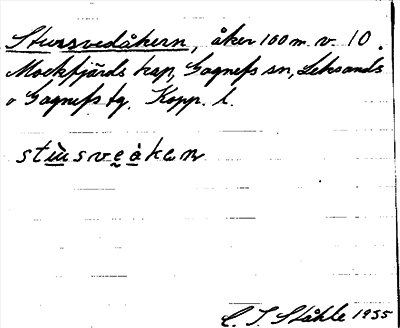 Stursvedåkern, åker 100 m. v. 10.
Mockfjärds kap, Gagnefs sn, Leksands
o Gagnefs tg. Kopp. l.
stu̠̇sve̠å̠kɐn
C. I. Ståhle 1935